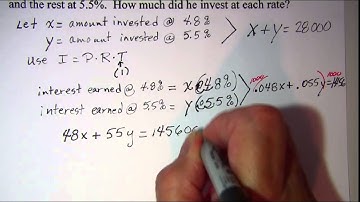 and the rest at 5.5%. How much did he invest at each rate?
Let x = amount invested @ 4.8%
y = amount invested @ 5.5%
x + y = 28000
Use I = P.R.T
(1)
interest earned @ 4.8% = x(4.8%)
interest earned @ 5.5% = y(5.5%)
1000 1000
.048x + .055y =
48x + 55y = 14560